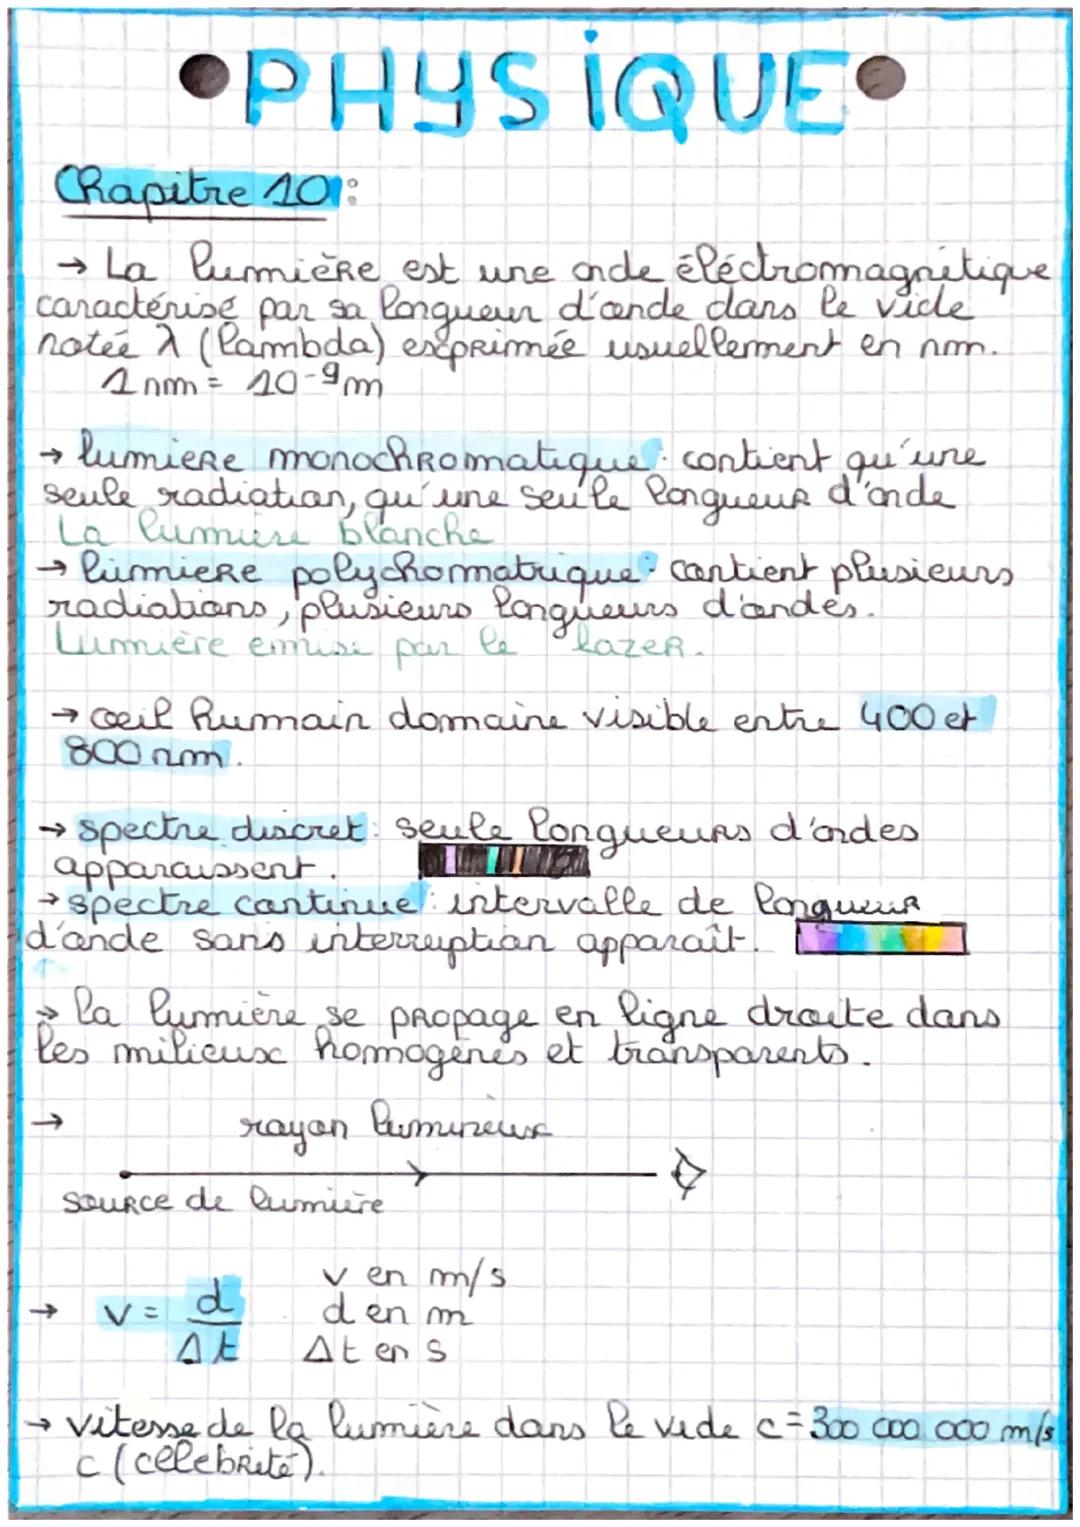 •PHYSIQUE•
Chapitre 10:
→ La lumière est une onde éléctromagnétique
caractérisé par sa longueur d'onde dans le vide
notée λ (lambda) exprimée usuellement en nm.
1 nm = 10-9 m
→ lumiere monochromatique : contient qu'une
seule radiation, qu'une seule longueur d'onde
La lumiere blanche
→ lumiere polychomatrique : contient plusieurs
radiations, plusieurs longueurs d'ondes.
Lumière emise par le lazer.
→ œil humain domaine visible entre 400 et
800 nm.
→ spectre discret : seule longueurs d'ondes
apparaissent.
→ spectre continue : intervalle de longueur
d'onde sans interruption apparaît.
→ la lumière se propage en ligne droite dans
les milieux homogènes et transparents.
→ rayon lumineux
source de lumière
v en m/s
→ v = d / Δt d en m
Δt en s
→ vitesse de la lumière dans le vide c = 300 000 000 m/s
c (célébrité).